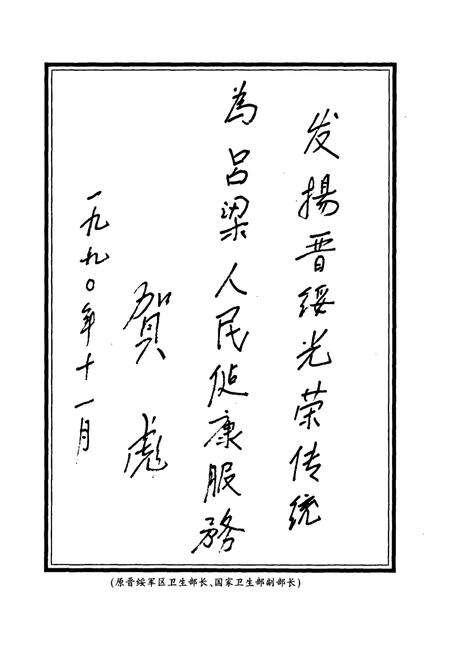 发揚晋綏光荣传统
為吕梁人民健康服務
贺彪
一九九〇年十一月
(原晋绥军区卫生部长、国家卫生部副部长)